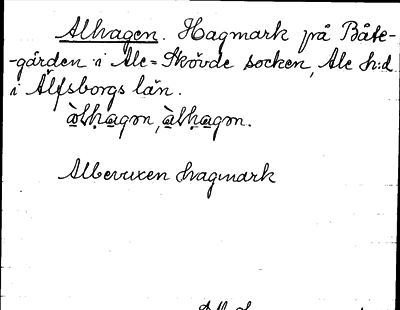 Alhagen. Hagmark på Båte-
-gården i Ale-Skövde socken, Ale h:d
i Älfsborgs län.
àlhagɷn, àlhagɷn.
Albevuxen hagmark